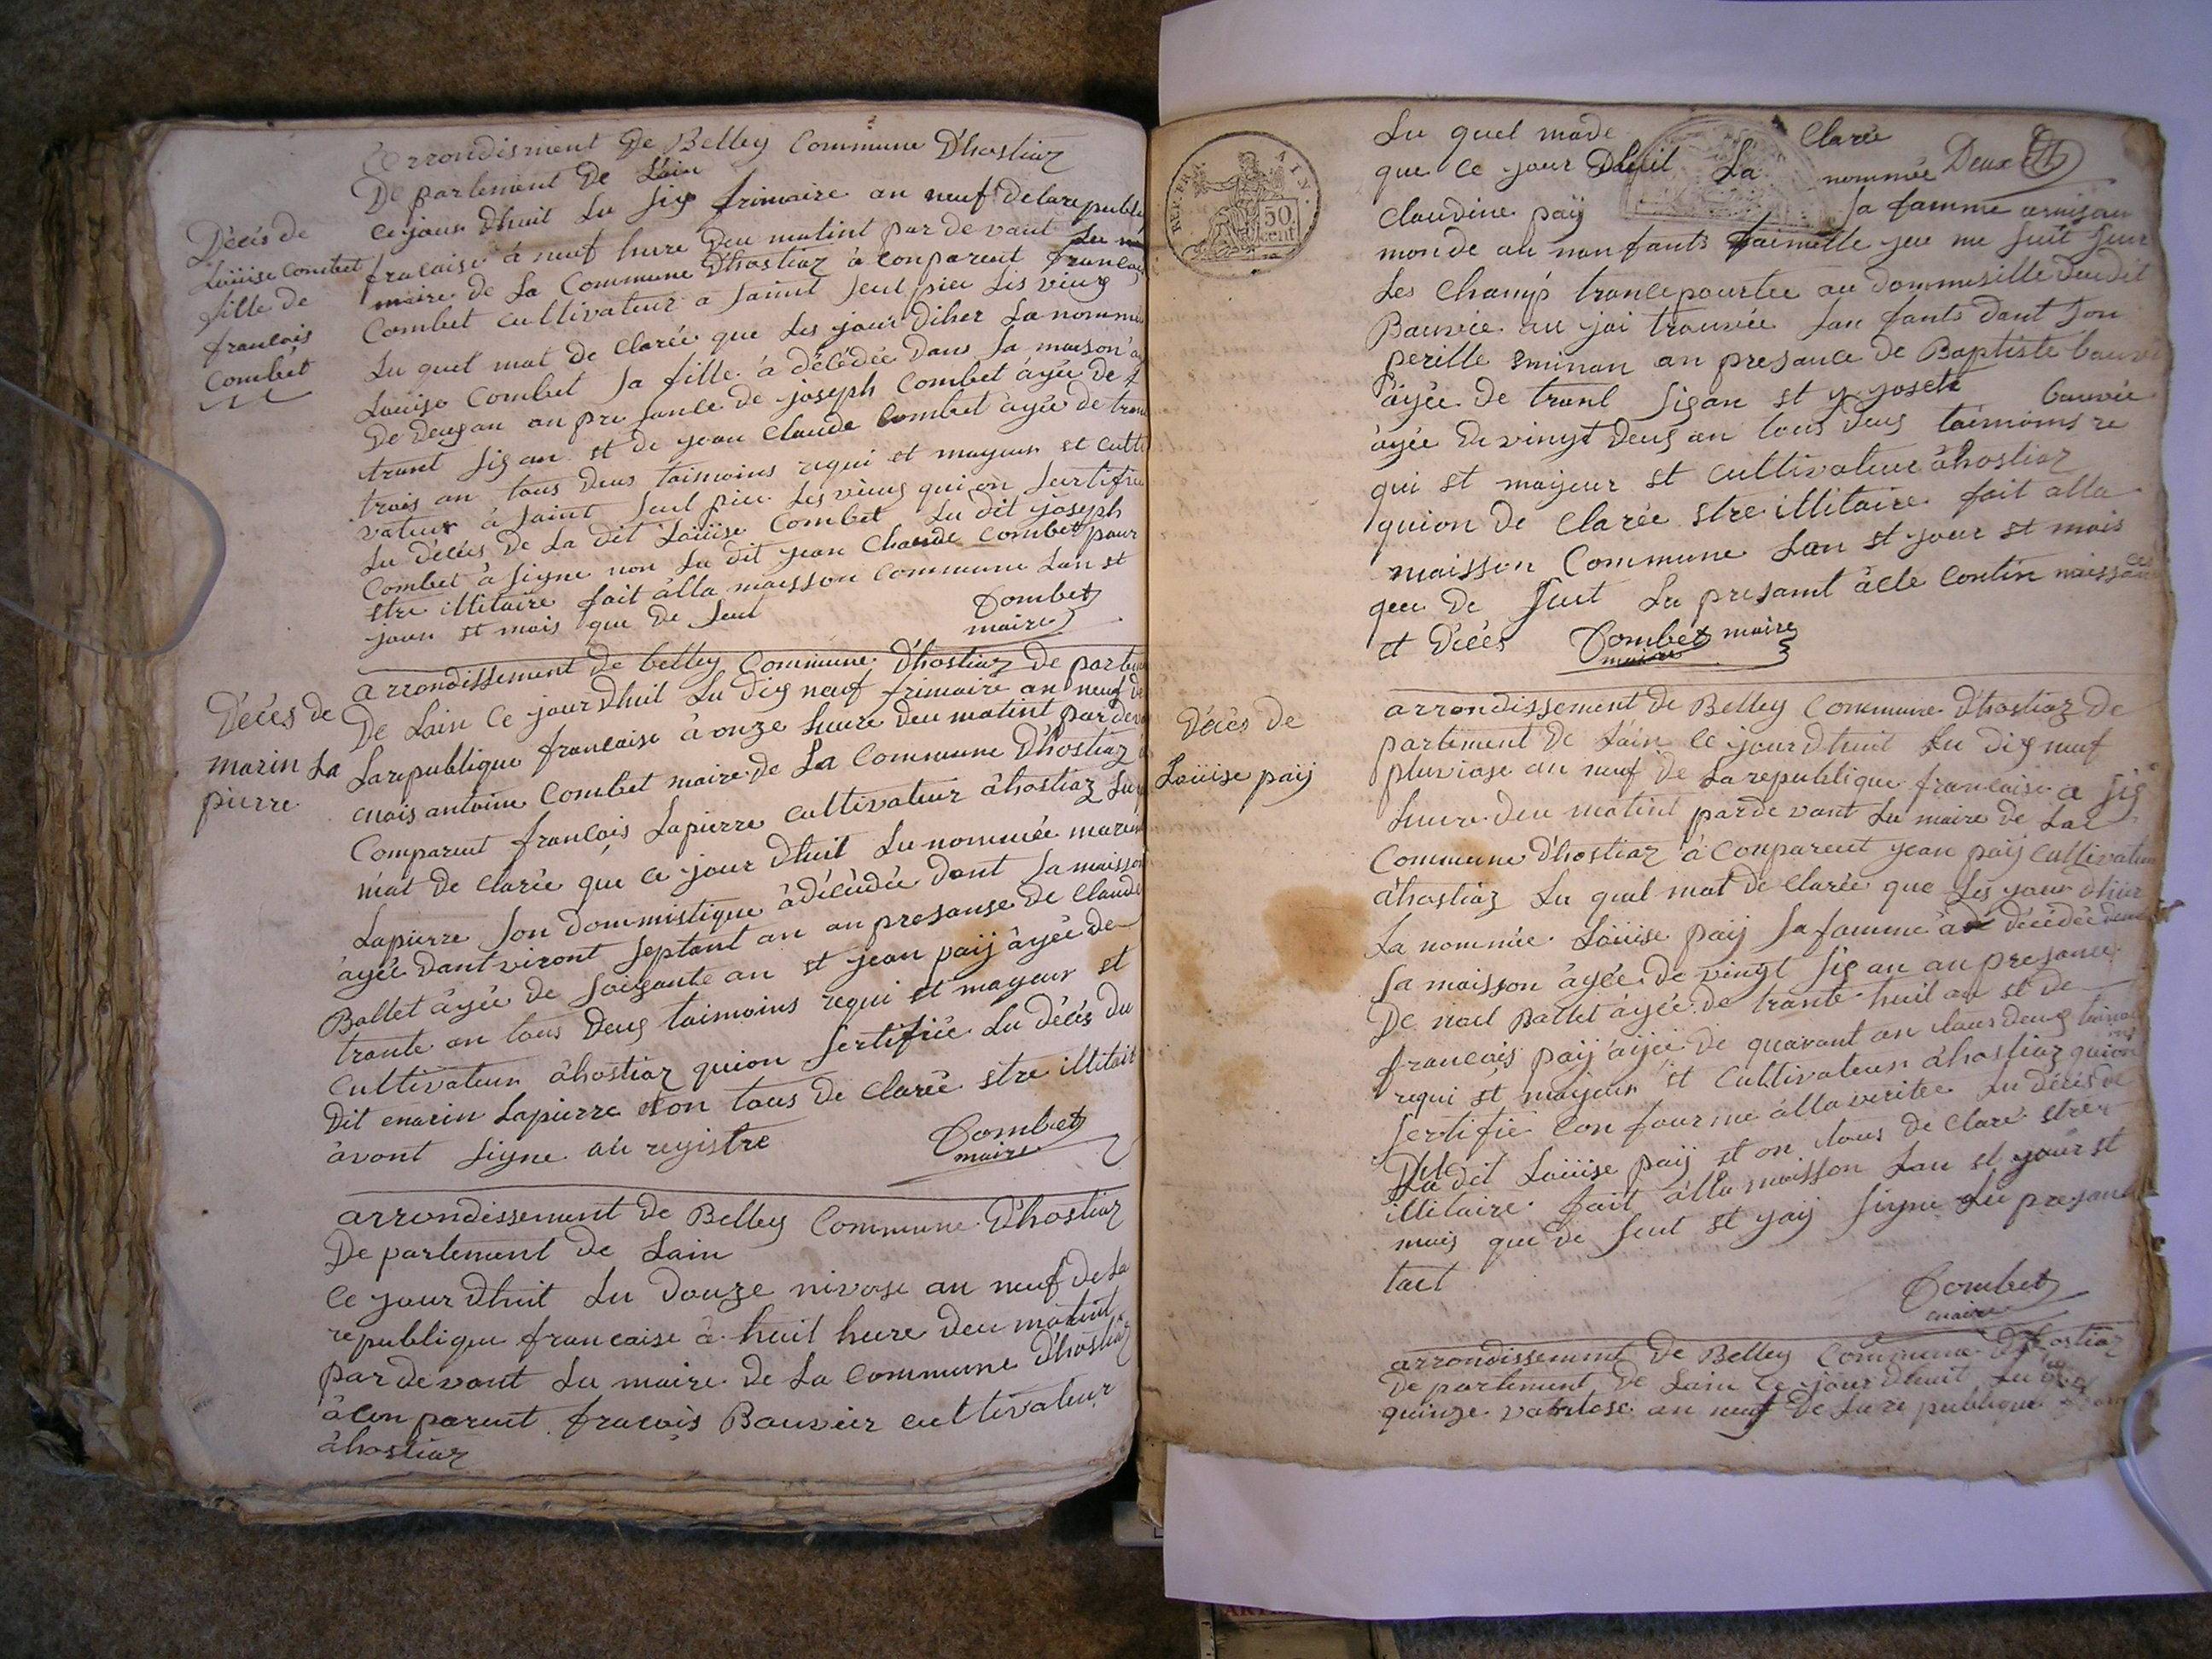 arrondisment De Belley Commune D'hostiaz
De partement De Lain
Décés de
Loüise Combet
fille de
francois
Combét
ce jour dhuit Lu six frimaire an neuf De lare publi
fracaise à neuf hure Deu matint par de vant Lu
maire de La Commune D'hostiaz à conparent francois
Combet cultivateur a saint seul pieu Les vieux
Lu quel mat de Clarée que Les jour diher La nommée
Loüise Combet sa fille à décédée Dans sa maison
De deux an an pre sance de joseph Combet âyée De
trant six an et de jean Claude Combet âyée de tran
trois an tous deus taimoins requi et mayeur et culti
vateur à saint seul pieu Les vieux qui on sertifiee
Lu décés De La dit Loüise Combet Lu dit joseph
Combet à signe non Lu dit jean Claude Combet pour
etre illitaire fait âlla maisson commune Lan et
jour et mois que De sut
Combet
maire
arrondissement De belley Commune D'hostiaz De parte
Décés de
marin La
pierre
De Lain ce jour Dhuit Lu dix neuf frimaire an neuf de
Larepublique francaise â onze heure deu matint par deva
mois antoine Combet maire de La Commune D'hostiaz à
Comparent francois Lapierre cultivateur âhostiaz Lu
mat de clarée que ce jour dhuit Lu nommée marin
Lapierre son dommistique à décédée dant sa maisson
âyée dant viront septant an an presanse de Claude
Ballet âyée de soixante an et jean paij âyée de
trante an tous Deux taimoins requi et mayeur et
cultivateur âhostiaz qui on sertifiée Lu décés du
Dit marin Lapierre et on tous De clarée etre illitair
âvant signe au registre
Combet
maire
arrondissement De Belley Commune D'hostiaz
De partement De Lain
Ce jour Dhuit Lu Douze nivose an neuf De La
republique francaise â huit heure Deu matint
par de vant Lu maire De La commune D'hostiaz
à con parent fracois Bauvier cultivateur
âhostiaz
REP. FRA. AIN.
50
cent
Lu quel made Clarée
que ce jour Dhuit La nommée Deux
Claudine paij sa famme
monde au nanfants
Les champs trancepourtée au dommisille deu dit
Bauvié au jai trouvée lan fants dont son
perille an presance de Baptiste bauvi
âyée De trant six an et y joseh bauvié
âyée De vingt Deux an tous Deus taimoins re
qui et majeur et cultivateur âhostiaz
qui on De clarée etre illitaire fait alla
maisson Commune Lan et jour et mois
que De sut Lu presamt âcte contin naissance
et Décés Combet maire
maire
arrondissement De Belley Commune D'hostiaz De
Décés De
Loüise paij
partement De Lain ce jour Dhuit Lu dix neuf
pluviose an neuf de La republique francaise a six
heure deu matint par de vant Lu maire De La
Commune D'hostiaz â conparent jean paij Cultivateu
âhostiaz Lu quel mat De clarée que Les jour dhier
La nommée Loüise paij sa famme â décédée dans
sa maisson âyée De vingt six an an presance
De noel Ballet âyée De trante huit an et De
francois paij âyée De quarant an tous deux taimoi
requi et mayeur et Cultivateur âhostiaz qui on
sertifie Con fourme âlla veritée Lu décés de
La dit Loüise paij et on tous De clare etre
illitaire fait âlla maisson Lan et jour et
mois que De sut et jaij signe Lu presant
tact
Combet
maire
arrondissemmt De Belley Commune D'hostiaz
De partement De Lain Ce jour dhuit Lu
quinze vantose an neuf De La re publique